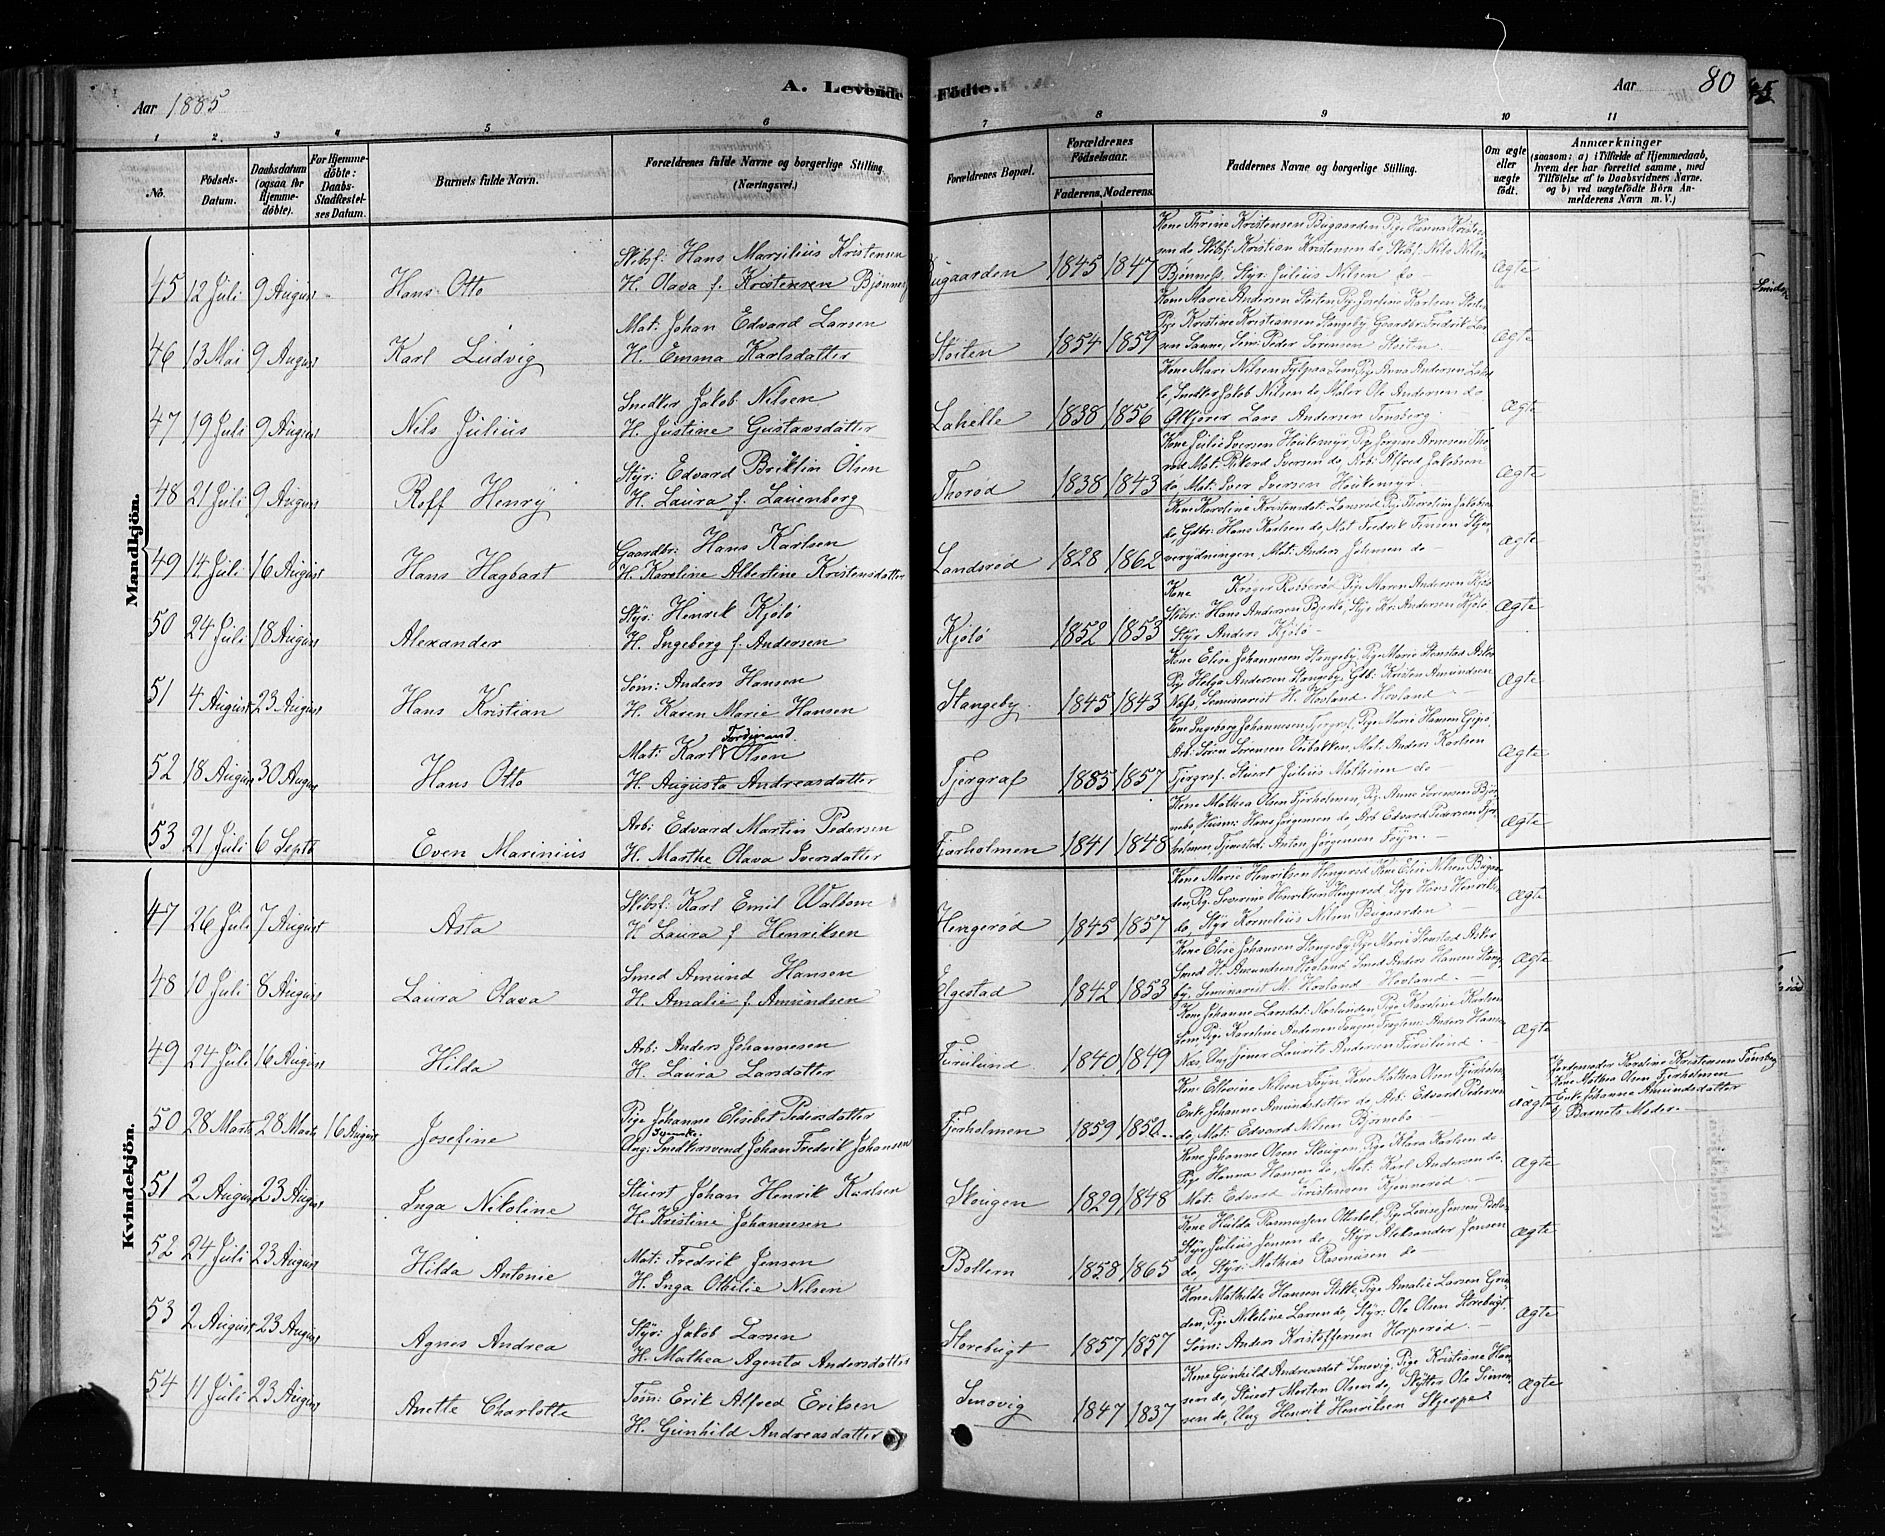 Aar 1885
A. Levende Födte.
Aar
80
1 2 3 4 5 6 7 8 9 10 11
No.
Födsels-Datum.
Daabsdatum (ogsaa for Hjemmedöbte).
For Hjemmedöbte: Daabs-Stadfæstelses Datum.
Barnets fulde Navn.
Forældrenes fulde Navne og borgerlige Stilling. (Næringsvei.)
Forældrenes Bopæl.
Forældrenes Födselsaar.
Faderens. Moderens.
Faddernes Navne og borgerlige Stilling.
Om ægte eller uægte födt.
Anmærkninger (saasom: a) i Tilfælde af Hjemmedaab, hvem der har forrettet samme, med Tilföielse af to Daabsvidners Navne. og b) ved uægtefödte Börn Anmelderens Navn m. V.)
Mandkjön.
45 12 Juli 9 August Hans Otto
Skibsf: Hans Marsilius Kristensen
H. Olava f. Kristensen Bjønnes
Bugaarden 1845 1847
Kone Thrine Kristensen Bugaarden Pige Hanna Kristen
sen do, Skibsf: Kristian Kristensen do, Skibsf: Nils Nilsen
Bjønness, Styr: Julius Nilsen do
Ægte
46 13 Mai 9 August Karl Ludvig
Mat: Johan Edvard Larsen
H. Emma Karlsdatter
Støiten 1854 1859
Kone Marie Andersen Støiten Pige Josefine Karlsen Støiten
Pige Kristine Kristiansen Stangeby Gaardbr: Fredrik Lar
sen Sanne, Søm: Peder Sørensen Støiten
Ægte
47 19 Juli 9 August Nils Julius
Snedker Jakob Nilsen
H. Justine Gustavsdatter
Lahelle 1838 1856
Kone Mari Nilsen Pige Anna Andersen
Snedker Jakob Nilsen do Maler Ole Andersen do
Lars Andersen Tønsberg
Ægte
48 21 Juli 9 August Roff Henry
Styr: Edvard Briktin Olsen
H. Laura f. Lauenberg
Thorød 1838 1843
Kone Julie Iversen Houkemyr, Pige Jørgine Arnesen Tho
rød Mat: Rikard Iversen do, Arb: Alfred Jakobsen
do, Mat: Iver Iversen Houkemyr
Ægte
49 14 Juli 16 August Hans Hagbart
Gaardbr: Hans Karlsen
H. Karoline Albertine Kristensdatter
Landsrød 1828 1862
Kone Karoline Kristensdat: Lansrød Pige Thoroline Jakobsen
do, Gdbr: Hans Karlsen do, Mat Fredrik Jensen Skjer
verydningen, Mat: Anders Johnsen do
Ægte
50 24 Juli 18 August Alexander
Styr: Henrik Kjølø
H. Ingeborg f. Andersen
Kjølø 1852 1853
Kone Krøger Robberød, Pige Maren Andersen Kjølø
Skibsr: Hans Andersen Bjerke, Styr Kr: Andersen Kjølø
Styr Anders Kjølø
Ægte
51 4 August 23 August Hans Kristian
Søm: Anders Hansen
H. Karen Marie Hansen
Stangeby 1845 1843
Kone Elise Johannesen Stangeby, Pige Marie Stenstad Asker
Pige Helga Andersen Stangeby, Gdb: Kristen Amundsen
Næss, Seminarist H. Hovland Hovland
Ægte
52 18 August 30 August Hans Otto
Ferdinand
Mat: Karl Olsen
H. Augusta Andreasdatter
Tjergraf 1885 1857
Kone Ingeborg Johannesen Tjergraf, Pige Marie Hansen Gipø
Arb: Søren Sørensen Veibakken, Mat: Anders Karlsen
Tjergraf, Stuert Julius Mathisen do
Ægte
53 21 Juli 6 Septb Even Marinius
Arb: Edvard Martin Pedersen
H. Marthe Olava Iversdatter
Fjærholmen 1841 1848
Kone Mathea Olsen Fjerholmen, Pige Anne Sørensen Bjør
nebo, Husm: Hans Jørgensen do, Arb Edvard Pedersen Fjær
holmen Tjenestd: Anton Jørgensen Føyn
Ægte
Kvindekjön.
47 26 Juli 7 August Asta
Skibsf: Karl Emil Waldem
H. Laura f. Henriksen
Hengerød 1845 1857
Kone Marie Henriksen Hengerød Kone Elise Nilsen Bugaar
den, Pige Severine Henriksen Hengerød Styr Hans Henriksen
do, Styr Kornelius Nilsen Bugaarden
Ægte
48 10 Juli 8 August Laura Olava
Smed Amund Hansen
H. Amalie f. Amundsen
Elgestad 1842 1853
Kone Elise Johansen Stangeby Pige Marie Stenstad Asker
Smed H. Amundsen Hovland Smed Anders Hansen Stange
by, Seminarist M. Hovland Hovland
Ægte
49 24 Juli 16 August Hilda
Arb: Anders Johannesen
H. Laura Larsdatter
Furulund 1840 1849
Kone Johanne Larsdat: Pige Karoline Karlsen
Pige Karoline Andersen Anders Hansen
Næs, Ung Laurits Andersen Furulund
Ægte
50 28 Marts 28 Marts 16 August Josefine
Pige Johanne Elisebet Pedersdatter
Svenske
Ung: Snedkersvend Johan Fredrik Johansen
Fjerholmen 1859 1850
Kone Ellevine Nilsen Føyn, Kone Mathea Olsen Fjerholm
Enke Johanne Amundsdatter do, Arb: Edvard Pedersen
do, Mat: Edvard Nilsen Bjørnebo
Uægte
Jordemoder Karoline Kristensen Tønsberg
Kone Mathea Olsen Fjerholmen
Enke Johanne Amundsdatter
Barnets Moder
51 2 August 23 August Inga Nikoline
Stuert Johan Henrik Karlsen
H. Kristine Johannesen
Skougen 1829 1848
Kone Johanne Olsen Skougen, Pige Klara Karlsen do
Pige Hanna Hansen do, Mat: Karl Andersen do,
Mat: Edvard Kristensen Kjønnerød
Ægte
52 24 Juli 23 August Hilda Antonie
Mat: Fredrik Jensen
H. Inga Otilie Nilsen
Bollern 1858 1865
Kone Hulda Rasmussen Ottebøl, Pige Lovise Jensen Bolæ
Styr Julius Jensen do, Styr Aleksander Jensen
do, Styr: Mathias Rasmusen do
Ægte
53 2 August 23 August Agnes Andrea
Styr: Jakob Larsen
H. Mathea Agenta Andersdatter
Storebugt 1857 1857
Kone Mathilde Hansen Pige Amalie Larsen
den, Pige Nikoline Larsen do, Styr: Ole Olsen Storebugt
Søm: Anders Kristoffersen Horperød
Ægte
54 11 Juli 23 August Anette Charlotte
Tøm: Erik Alfred Eriksen
H. Gunhild Andreasdatter
Smovig 1847 1837
Kone Gunhild Andreasdat Smovig, Pige Kristiane Han
sen do, Stuert Morten Olsen do, Skytter Ole Simen
sen do, Ung Henrik Henriksen
Ægte